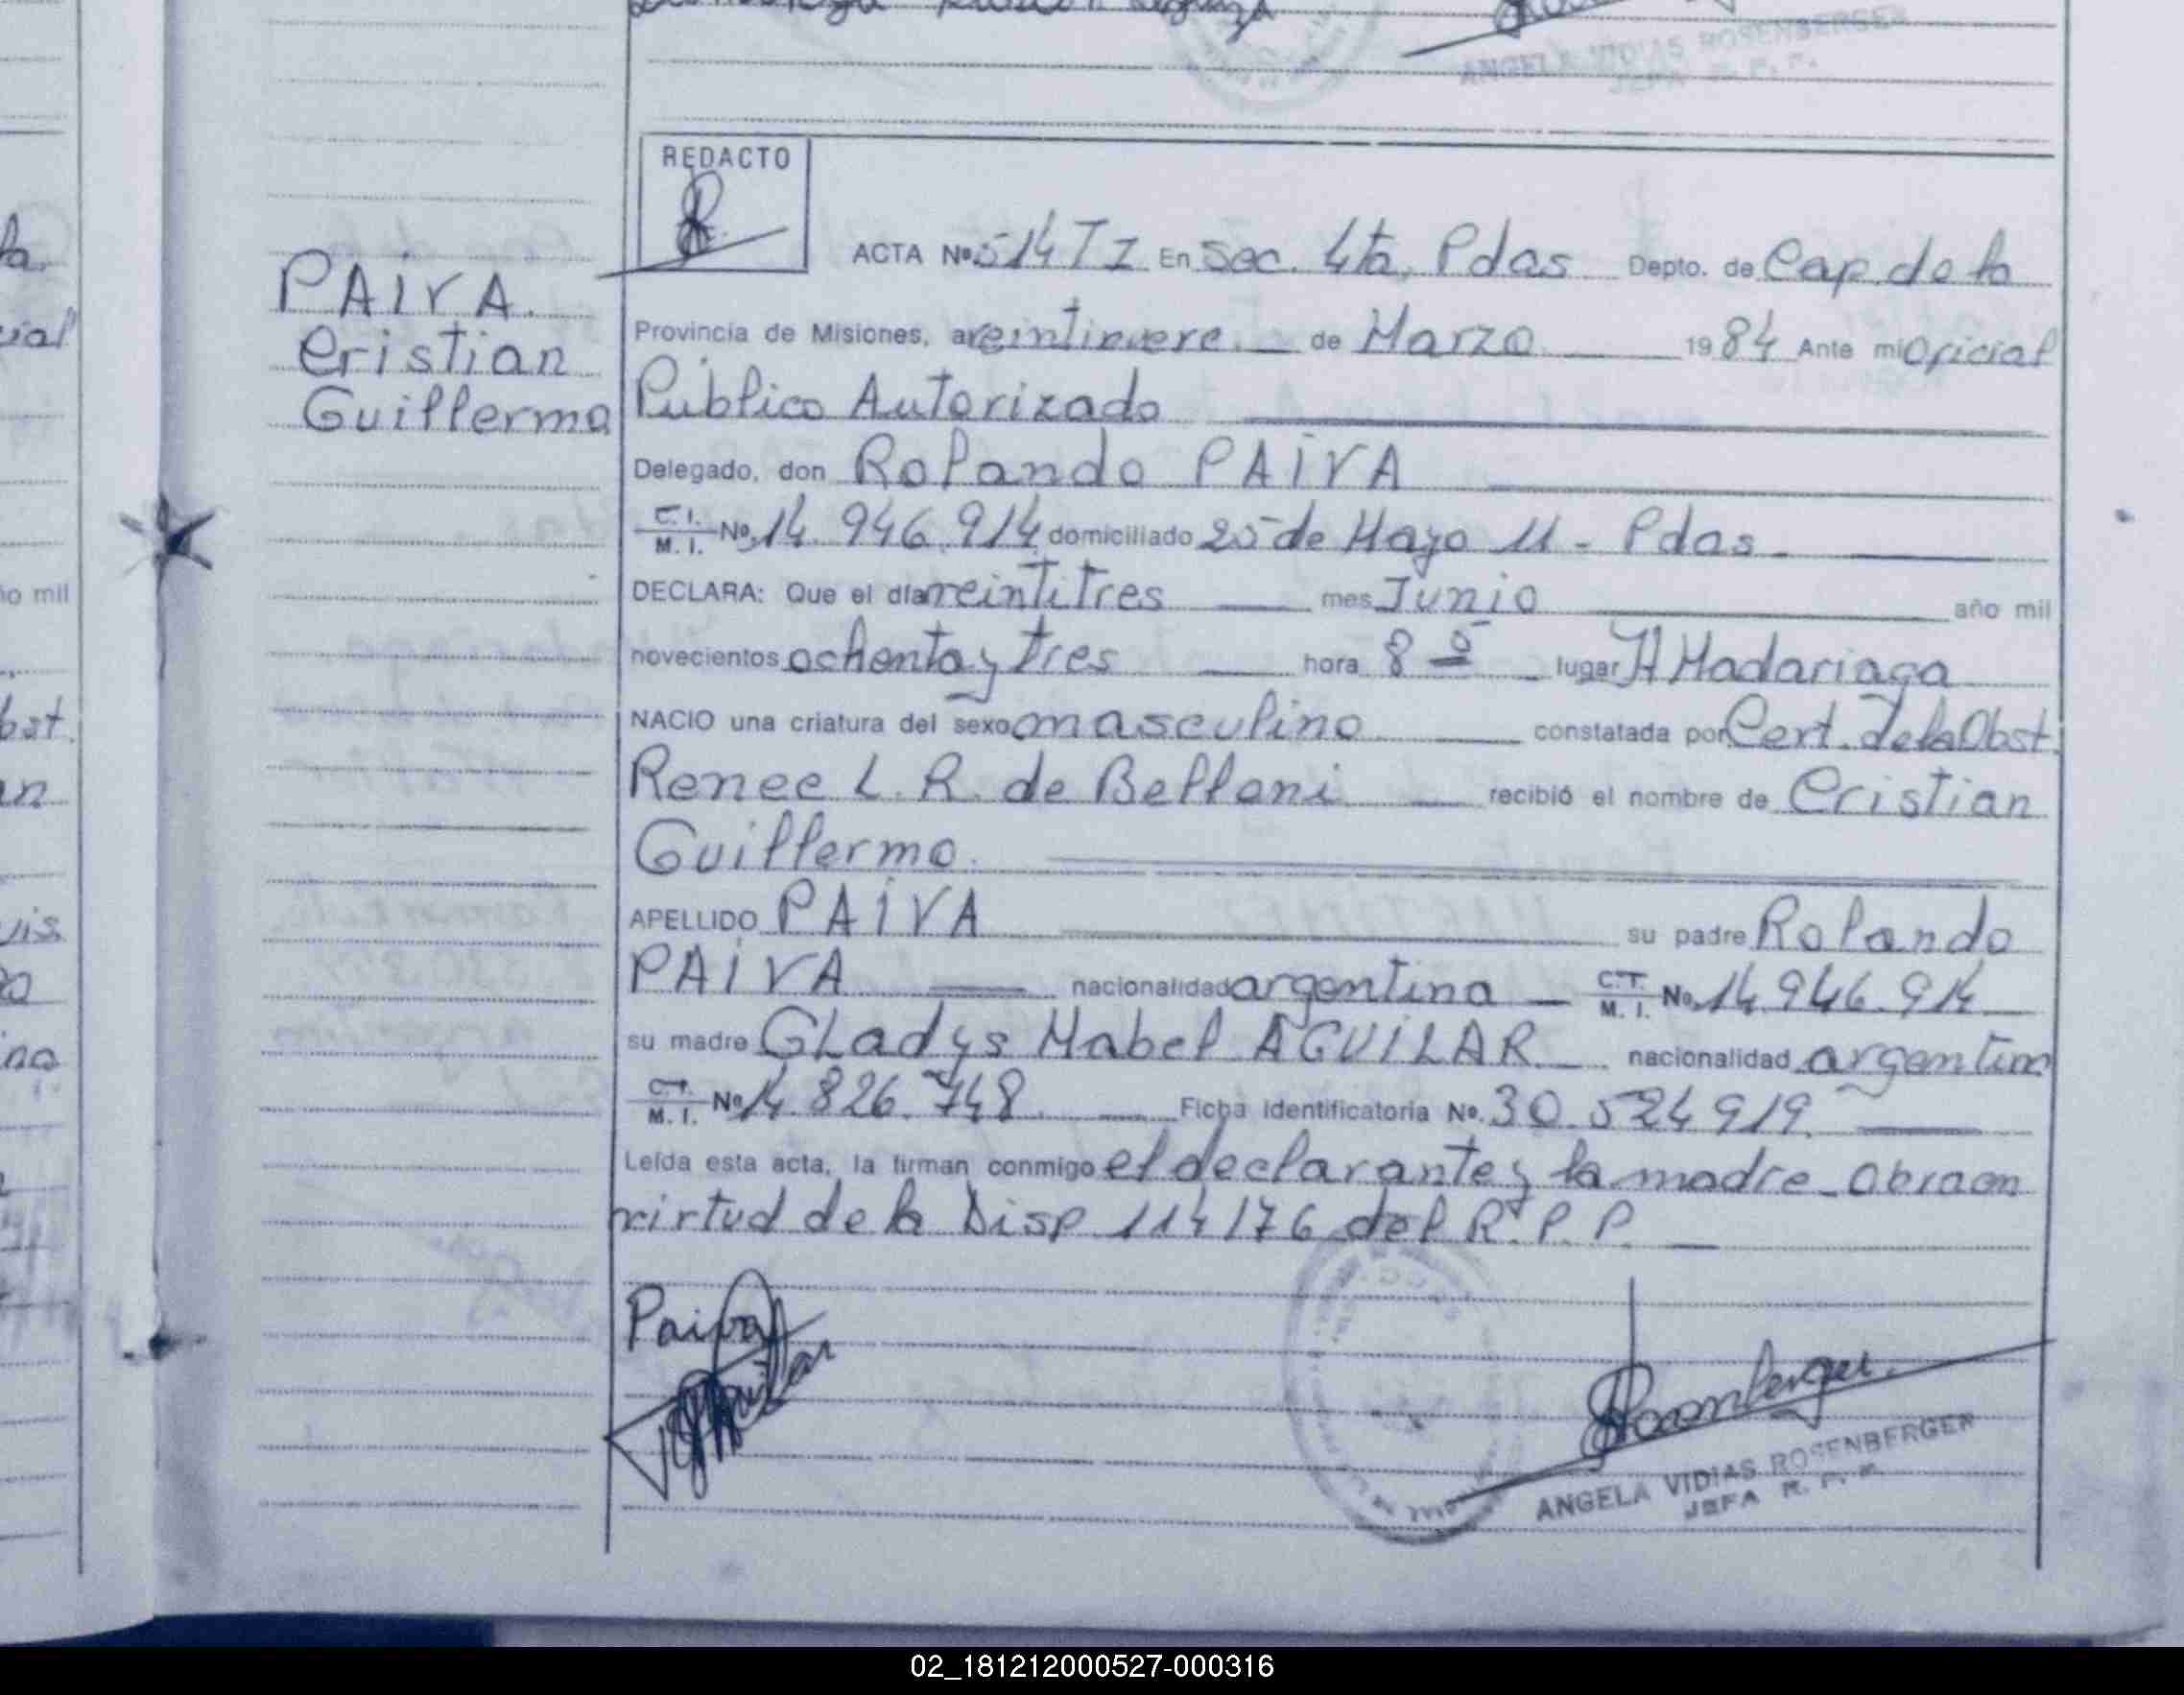 ANGELA VIDIAS ROSENBERGER
JEFA R. P. P.
REDACTO
ACTA Nº 514 T I En Sec. 4ta, Pdas Depto. de Cap. de la
PAIVA.
Cristian
Guillermo
Provincia de Misiones, a veintinueve de Marzo 1984 Ante mi Oficial
Público Autorizado
Delegado, don Rolando PAIVA
C. I. M. I. Nº 14.946.914 domiciliado 25 de Mayo 11 - Pdas -
DECLARA: Que el día veintitres mes Junio año mil
novecientos ochenta y tres hora 8 º lugar H Madariaga
NACIO una criatura del sexo masculino constatada por Cert. de la Obst.
Renee L. R. de Belloni recibió el nombre de Cristian
Guillermo.
APELLIDO PAIVA su padre Rolando
PAIVA nacionalidad argentina C. I. M. I. Nº 14.946.914
su madre GLadys Mabel AGUILAR nacionalidad argentina
C. I. M. I. Nº 14.826.748 Ficha Identificatoria Nº. 30.524919.
Leída esta acta, la firman conmigo el declarante y la madre - Obra en
virtud de la Disp 114/76 del R. P. P.
Paiva
Aguilar
Rosenberger
ANGELA VIDIAS ROSENBERGER
JEFA R. P. P.
02_181212000527-000316